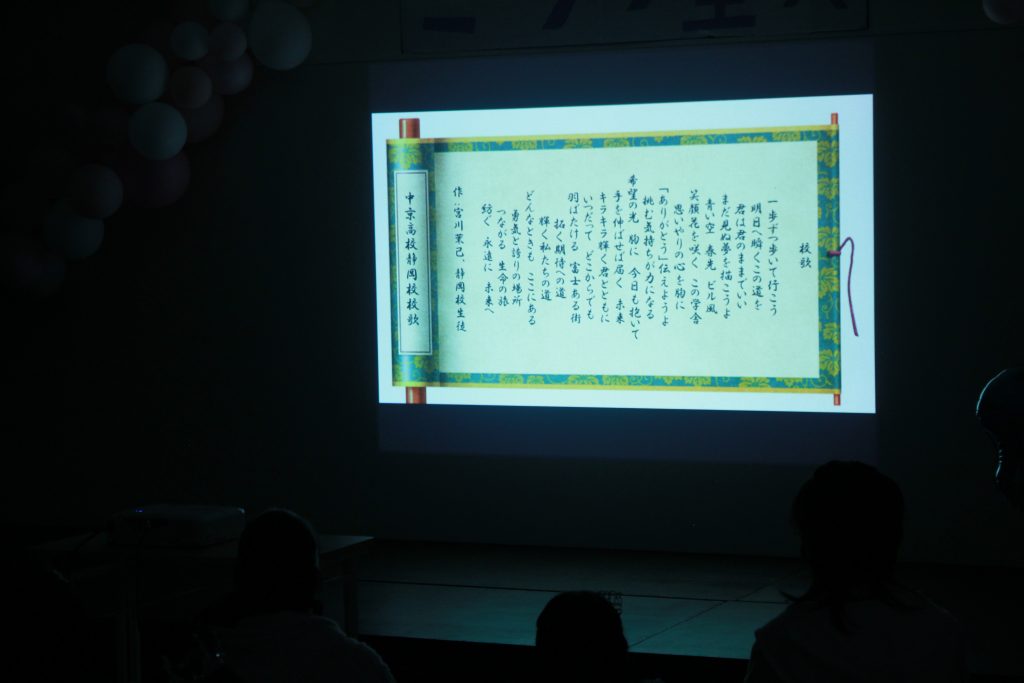 校歌
一歩ずつ歩いて行こう
明日へ瞬くこの道を
君は君のままでいい
まだ見ぬ夢を描こうよ
青い空 春光 ビル風
笑顔花を咲く この学舎
思いやりの心を胸に
「ありがとう」伝えようよ
挑む気持ちが力になる
希望の光 胸に 今日も抱いて
手を伸ばせば届く 未来
キラキラ輝く君とともに
いつだって どこからでも
羽ばたける 富士ある街
拓く期待への道
輝く私たちの道
どんなときも ここにある
勇気と誇りの場所
つながる 生命の旅
紡ぐ 永遠に 未来へ
作：宮川茉己、静岡校生徒
中京高校静岡校校歌